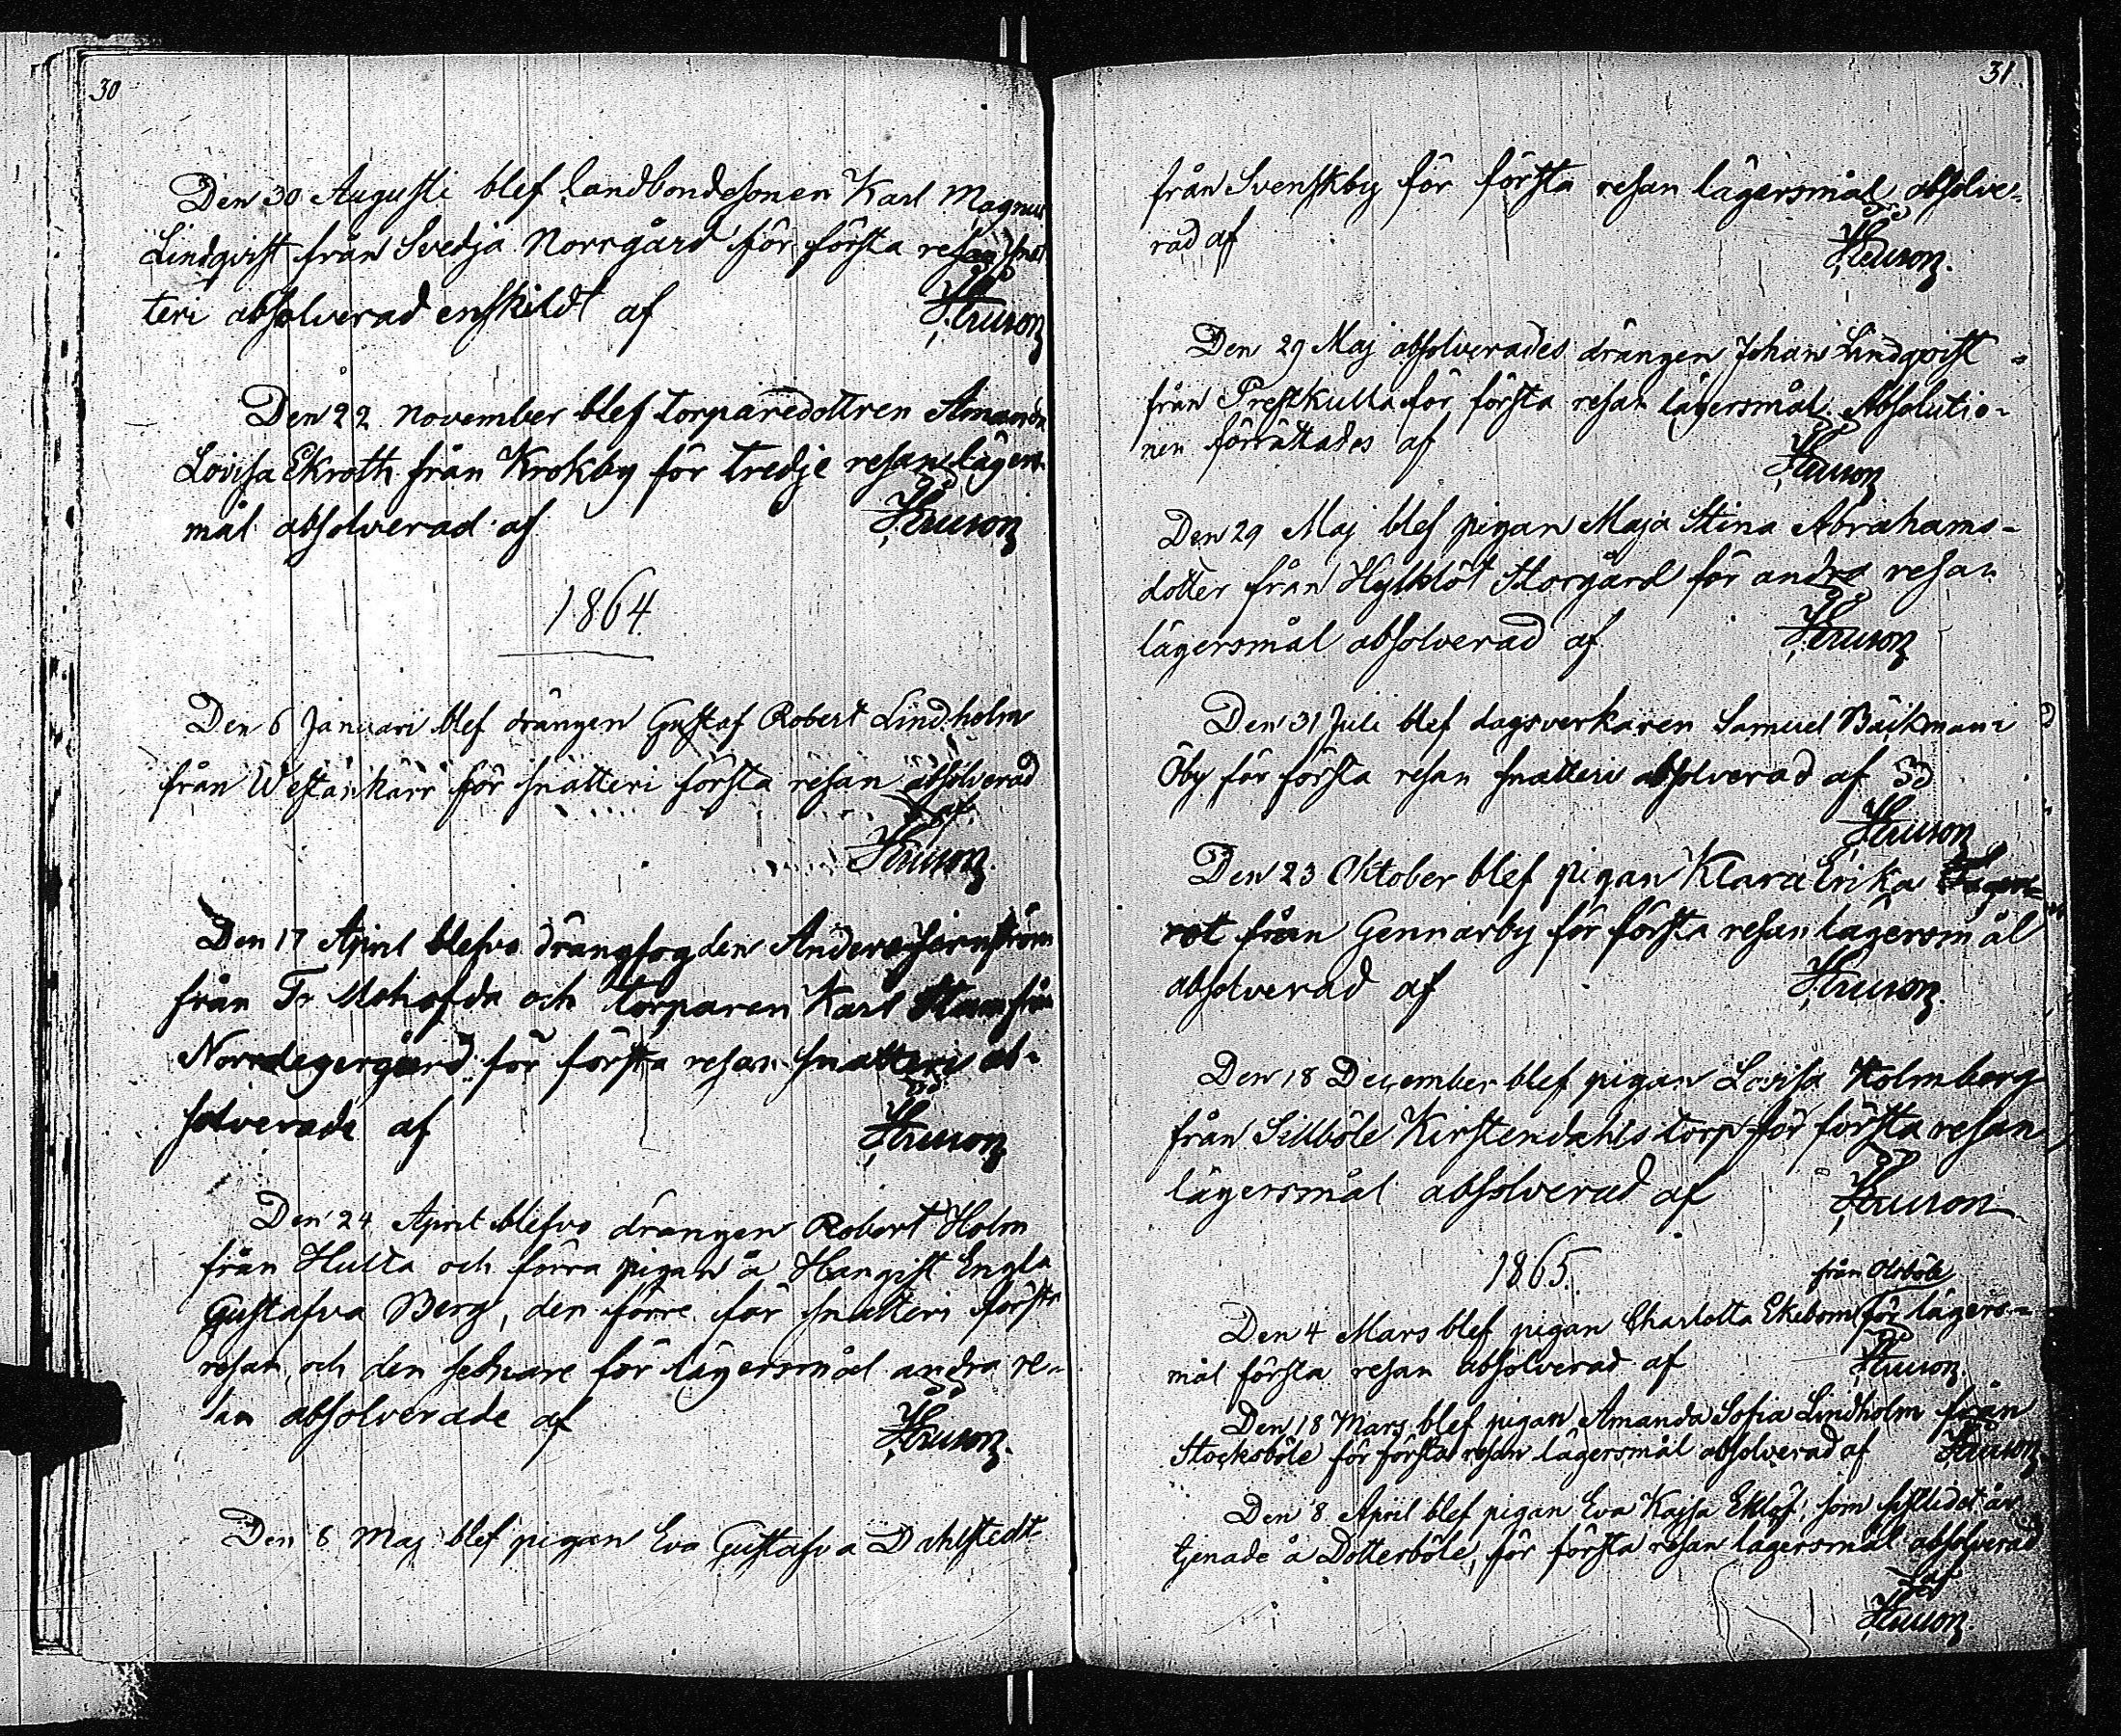 30
Den 30 Augusti blef landbondesonen Karl Magnus
Lindqvist från Svedja Norrgård för första resan snat
teri absolverad enskildt af
Den 22 November blef torparedottren Amanda
Lovisa Ekroth från Krokby för tredje resan lägers
mål absolverad af
1864.
Den 6 Januari blef drängen Gustaf Robert Lindholm
från Westankärr för snatteri första resan absolverad
af
Den 17 April blefvo drängfogden Anders
från och torparen Karl från
för första resan snatteri ab-
solverade af
Den 24 April blefvo drängen Robert Holm
från Hulta och förra pigan å Hangist Engla
Gustafva Berg, den förre för snatteri första
resan, och den sednare för lägersmål andra re-
san absolverade af
Den 8 Maj blef pigan Eva Gustafva Dahlstedt
31.
från Svenskby för första resan lägersmål absolve-
rad af
Den 29 Maj absolverades drängen Johan Lindqvist
från Prestkulla för första resan lägersmål. Absolutio-
nen förrättades af
Den 29 Maj blef pigan Maja Stina Abrahams-
dotter från Storgård för andra resan
lägersmål absolverad af
Den 31 Juli blef dagsverkaren Samuel Bäckman i
Öby för första resan snatteri absolverad af
Den 23 Oktober blef pigan Klara Erika
från Gennarby för första resan lägersmål
absolverad af
Den 18 December blef pigan Lovisa Holmberg
från Sillböle Kirstendahls torp för första resan
lägersmål absolverad af
1865.
från
Den 4 Mars blef pigan Charlotta Ekebom för lägers-
mål första resan absolverad af
Den 18 Mars blef pigan Amanda Sofia Lindholm från
Stocksböle för första resan lägersmål absolverad af
Den 8 April blef pigan Eva Kajsa Eklöf, som sistlidet år
tjenade å Dotterböle, för första resan lägersmål absolverad
af